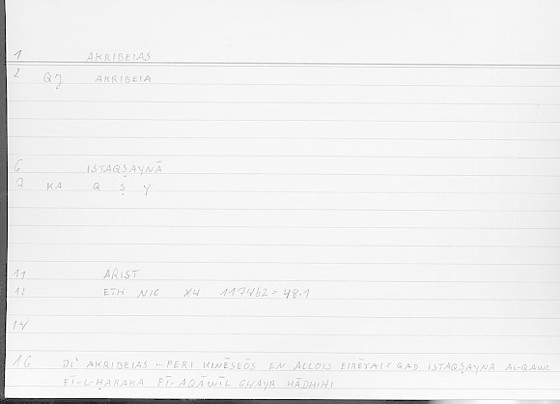 1 AKRIBEIAS
2 QJ AKRIBEIA
6 ISTAQṢAYNĀ
7 KA Q Ṣ Y
11 ARIST
12 ETH NIC X4 1174b2 = 48.1
14
16 DI' AKRIBEIAS - PERI KINĒSEŌS EN ALLOIS EIRĒTAI: QAD ISTAQṢAYNA AL-QAWL
FĪ-L-ḤARAKA FĪ-AQĀWĪL GHAYR HĀDHIHI